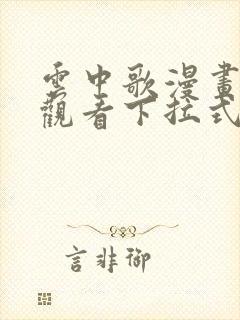 雲中歌漫畫
觀看下拉式
言非御